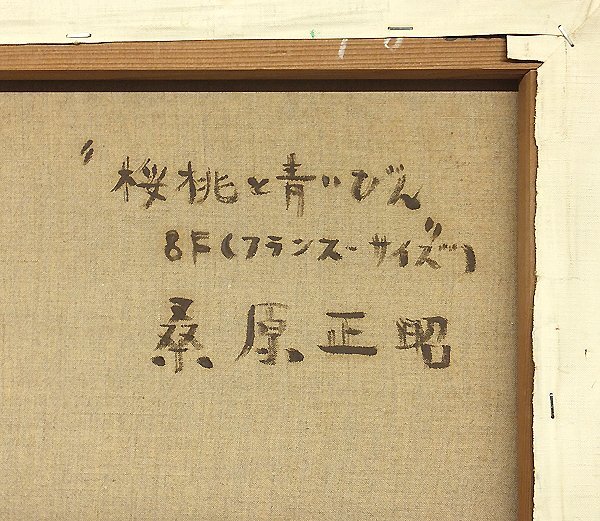 〃桜桃と青いびん〃
8F(フランスーサイズ)
桑原正昭